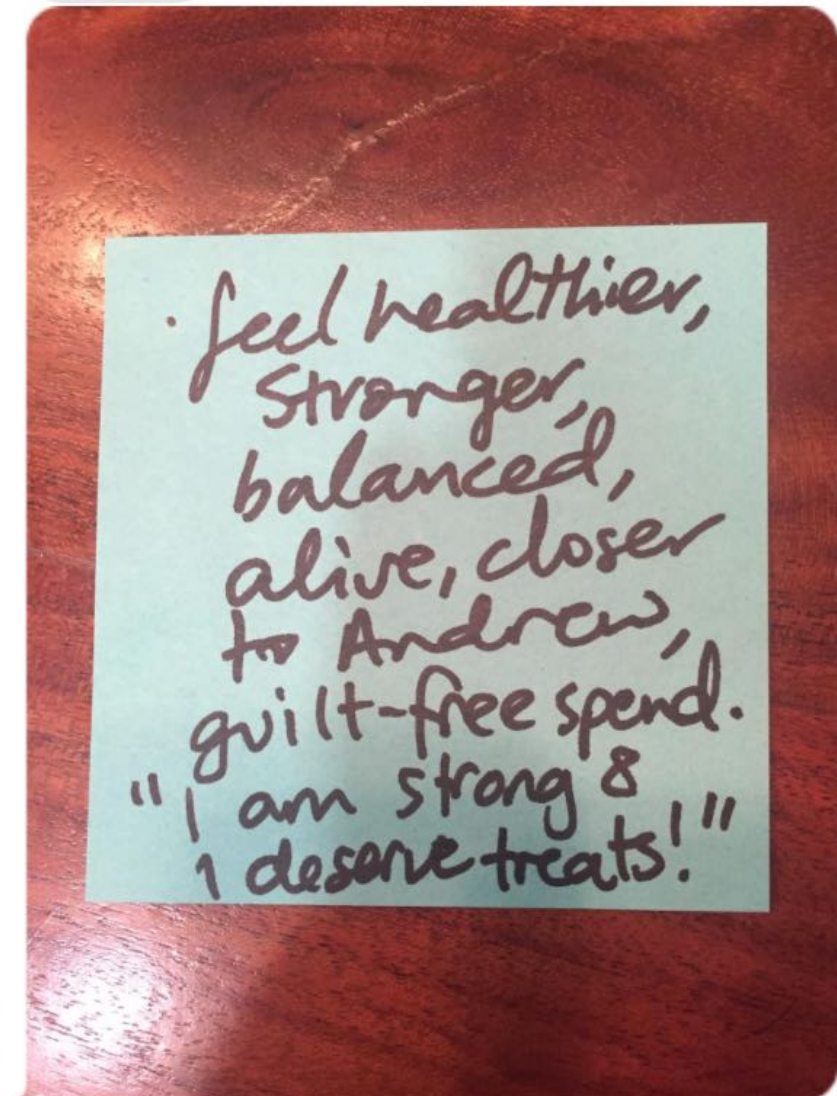 · feel healthier,
Stronger,
balanced,
alive, closer
to Andrew,
guilt-free spend.
"I am strong &
I deserve treats!"